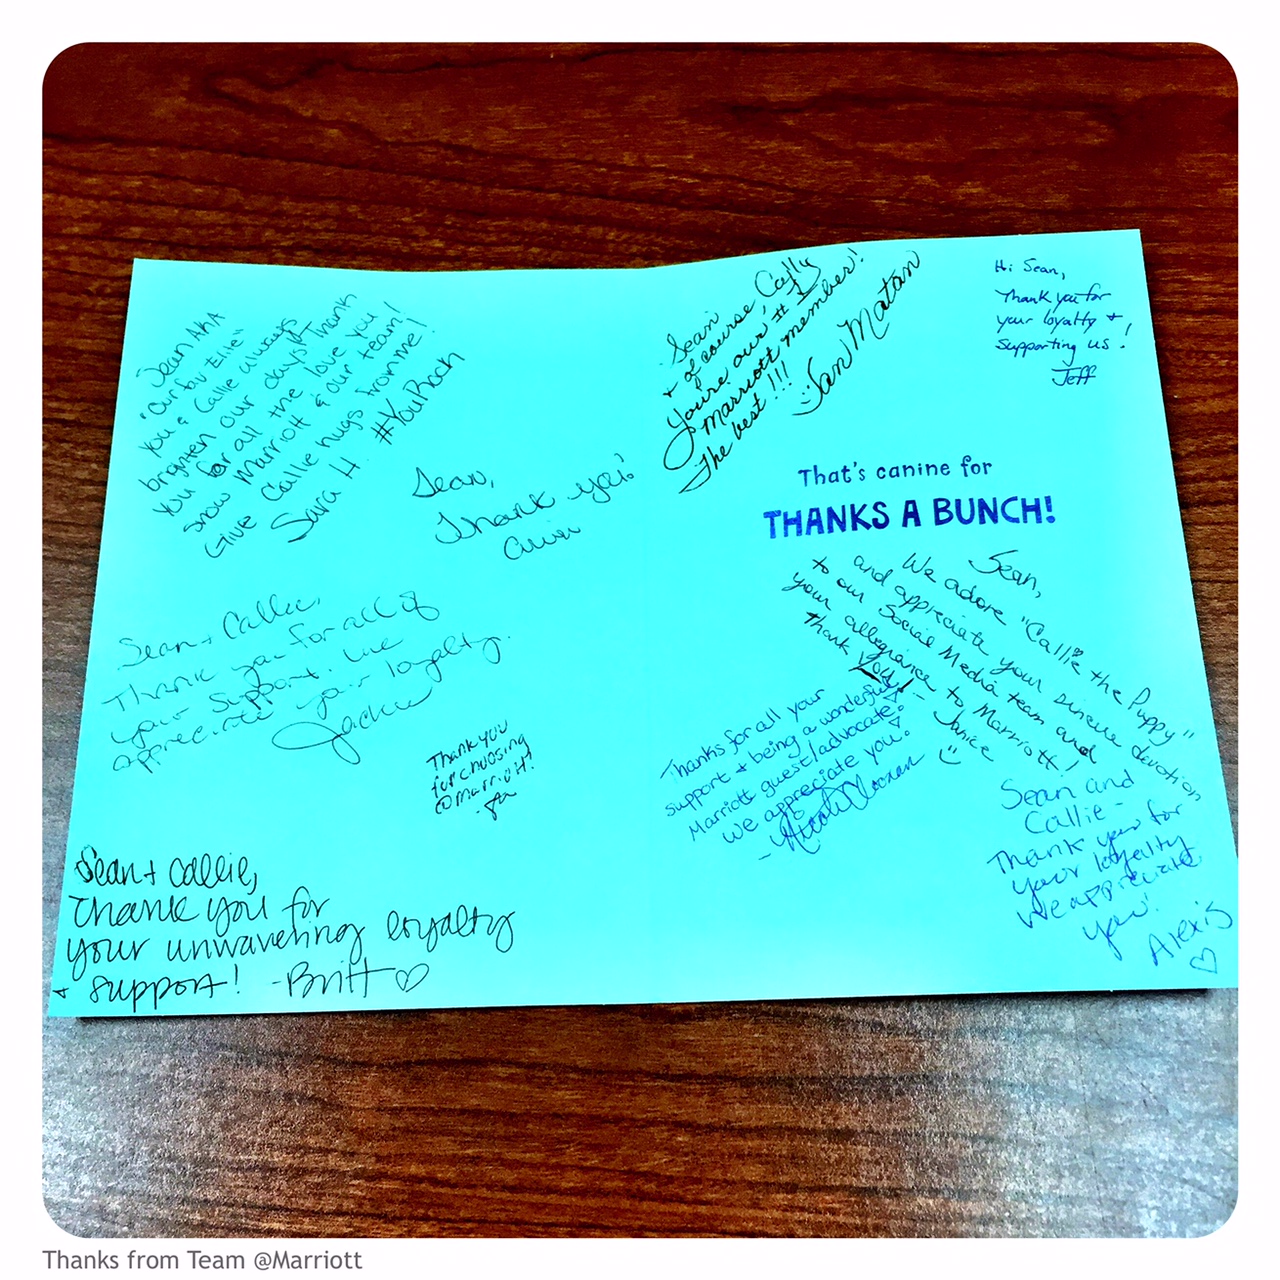 Sean AKA
"Our fav Elite"
You & Callie always
brighten our days! Thank
you for all the love you
show Marriott & our team!
Give Callie hugs from me!
Sara H. #YouRock
Sean,
Thank you!
Sean + Callie,
Thank you for all of
your support. We
appreciate your loyalty.
Jackie
Thank you
for choosing
@marriott!
Sean + Callie,
Thank you for
your unwavering loyalty
+ support! -Britt ♡
Sean
+ of course, Cally
You're our #1
Marriott member!
The best!!!
Jan Matan
Hi Sean,
Thank you for
your loyalty +
supporting us!
Jeff
That's canine for
THANKS A BUNCH!
Sean,
We adore "Callie the Puppy"
and appreciate your sincere devotion
to our Social Media team and
your allegiance to Marriott!
Thank you!
- Janice
Thanks for all your
support + being a wonderful
Marriott guest/advocate!
We appreciate you!
- Nicole Noonan
Sean and
Callie -
Thank you for
your loyalty
we appreciate
you!
Alexis
♡
Thanks from Team @Marriott